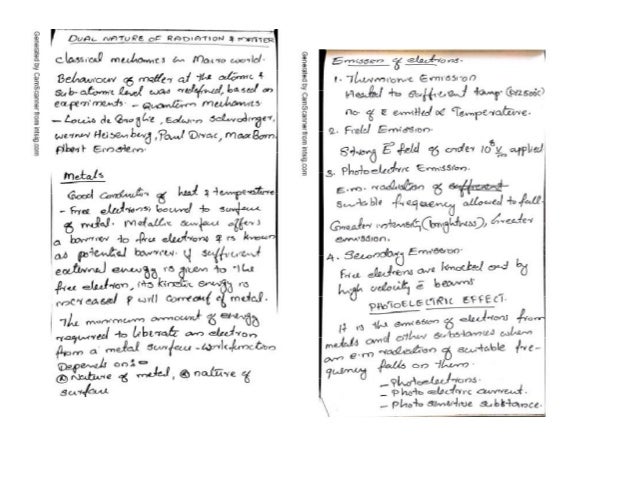 DUAL NATURE OF RADIATION & MATTER
Classical mechanics in Macro world.
Behaviour of matter at the atomic &
Sub-atomic level was redefined, based on
experiments - Quantum Mechanics
- Louis de Broglie, Edwin Schrodinger,
Werner Heisenberg, Paul Dirac, Max Born,
Albert Einstein
Metals
Good Conductors of heat & temperature
- Free electrons, bound to surface
of metal. Metallic surface offers
a barrier to free electrons & is known
as potential barrier. If sufficient
external energy is given to the
free electron, its kinetic energy is
increased & will come out of metal.
The minimum amount of energy
required to liberate an electron
from a metal surface - Work function
Depends on :-
① Nature of metal, ② nature of
surface
Generated by CamScanner from intsig.com
Emission of electrons.
1. Thermionic Emission
Heated to sufficient temp
no of e emitted ∝ Temperature.
2. Field Emission.
Strong E field of order 10⁸ V/m applied
3. Photoelectric Emission.
E.m. radiation of sufficient
suitable frequency allowed to fall.
Greater intensity (brightness), Greater
emission.
4. Secondary Emission.
Free electrons are knocked out by
high velocity e beams
PHOTOELECTRIC EFFECT.
It is the emission of electrons from
metals and other substances when
an e.m radiation of suitable fre-
quency falls on them.
- Photoelectrons.
- Photo electric current.
- Photo sensitive substance.
Generated by CamScanner from intsig.com